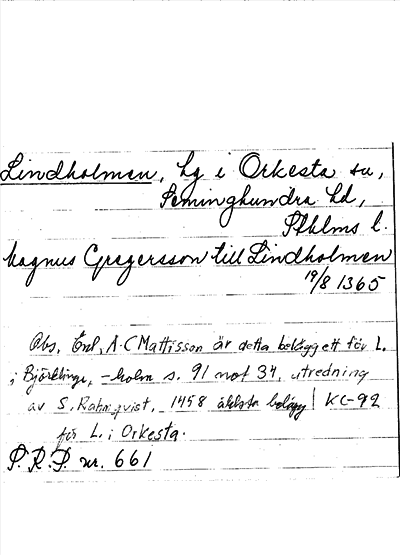 Lindholmen, hg i Orkesta sn,
Seminghundra hd,
Sthlms l.
Magnus Gregersson till Lindholmen
19/8 1365
Obs, Enl, A-C Mattisson är detta belägg ett för L.
i Björklinge, -holm s. 91 not 34, utredning
av S. Rahmqvist, 1458 äldsta belägg! KC-92
för L. i Orkesta.
P. R. P. nr. 661